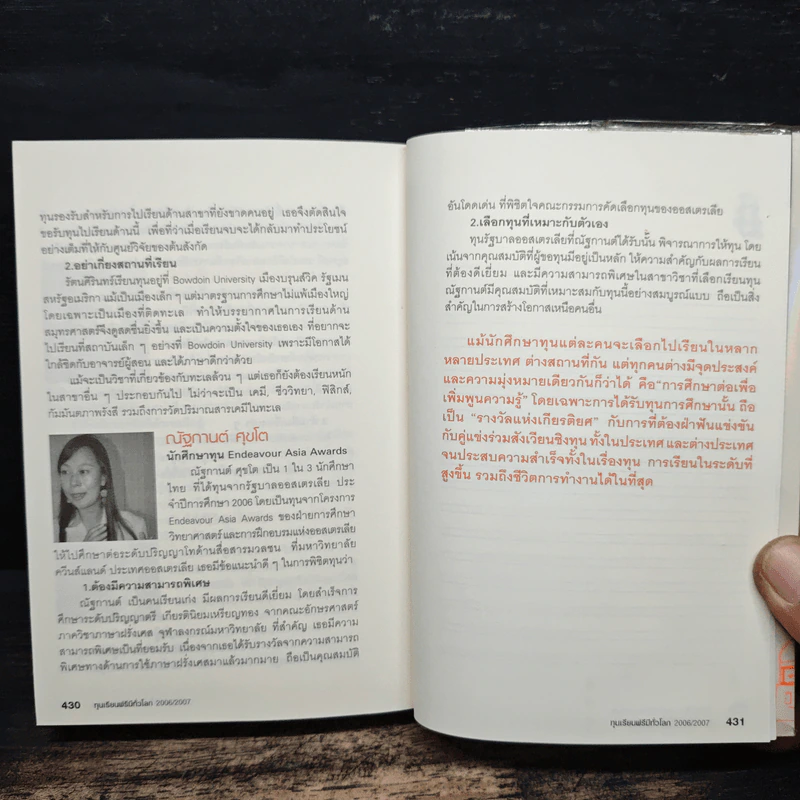 ทุนรองรับสำหรับการไปเรียนด้านสาขาที่ยังขาดคนอยู่ เธอจึงตัดสินใจ
ขอรับทุนไปเรียนด้านนี้ เพื่อที่ว่าเมื่อเรียนจบจะได้กลับมาทำประโยชน์
อย่างเต็มที่ให้กับศูนย์วิจัยของต้นสังกัด
2.อย่าเกี่ยงสถานที่เรียน
รัตนศิรินทร์เรียนทุนอยู่ที่ Bowdoin University เมืองบรุนส์วิค รัฐเมน
สหรัฐอเมริกา แม้เป็นเมืองเล็ก ๆ แต่มาตรฐานการศึกษาไม่แพ้เมืองใหญ่
โดยเฉพาะเป็นเมืองที่ติดทะเล ทำให้บรรยากาศในการเรียนด้าน
สมุทรศาสตร์จึงดูสดชื่นยิ่งขึ้น และเป็นความตั้งใจของเธอเอง ที่อยากจะ
ไปเรียนที่สถาบันเล็ก ๆ อย่างที่ Bowdoin University เพราะมีโอกาสได้
ใกล้ชิดกับอาจารย์ผู้สอน และได้ภาษาดีกว่าด้วย
แม้จะเป็นวิชาที่เกี่ยวข้องกับทะเลล้วน ๆ แต่เธอก็ยังต้องเรียนหนัก
ในสาขาอื่น ๆ ประกอบกันไป ไม่ว่าจะเป็น เคมี, ชีววิทยา, ฟิสิกส์,
กัมมันตภาพรังสี รวมถึงการวัดปริมาณสารเคมีในทะเล
ณัฐกานต์ ศุขโต
นักศึกษาทุน Endeavour Asia Awards
ณัฐกานต์ ศุขโต เป็น 1 ใน 3 นักศึกษา
ไทย ที่ได้ทุนจากรัฐบาลออสเตรเลีย ประ
จำปีการศึกษา 2006 โดยเป็นทุนจากโครงการ
Endeavour Asia Awards ของฝ่ายการศึกษา
วิทยาศาสตร์ และการฝึกอบรมแห่งออสเตรเลีย
ให้ไปศึกษาต่อระดับปริญญาโทด้านสื่อสารมวลชน ที่มหาวิทยาลัย
ควีนส์แลนด์ ประเทศออสเตรเลีย เธอมีข้อแนะนำดี ๆ ในการพิชิตทุนว่า
1.ต้องมีความสามารถพิเศษ
ณัฐกานต์ เป็นคนเรียนเก่ง มีผลการเรียนดีเยี่ยม โดยสำเร็จการ
ศึกษาระดับปริญญาตรี เกียรตินิยมเหรียญทอง จากคณะอักษรศาสตร์
ภาควิชาภาษาฝรั่งเศส จุฬาลงกรณ์มหาวิทยาลัย ที่สำคัญ เธอมีความ
สามารถพิเศษเป็นที่ยอมรับ เนื่องจากเธอได้รับรางวัลจากความสามารถ
พิเศษทางด้านการใช้ภาษาฝรั่งเศสมาแล้วมากมาย ถือเป็นคุณสมบัติ
430 ทุนเรียนฟรีมีทั่วโลก 2006/2007
อันโดดเด่น ที่พิชิตใจคณะกรรมการคัดเลือกทุนของออสเตรเลีย
2.เลือกทุนที่เหมาะกับตัวเอง
ทุนรัฐบาลออสเตรเลียที่ณัฐกานต์ได้รับนั้น พิจารณาการให้ทุน โดย
เน้นจากคุณสมบัติที่ผู้ขอทุนมีอยู่เป็นหลัก ให้ความสำคัญกับผลการเรียน
ที่ต้องดีเยี่ยม และมีความสามารถพิเศษในสาขาวิชาที่เลือกเรียนทุน
ณัฐกานต์มีคุณสมบัติที่เหมาะสมกับทุนนี้อย่างสมบูรณ์แบบ ถือเป็นสิ่ง
สำคัญในการสร้างโอกาสเหนือคนอื่น
แม้นักศึกษาทุนแต่ละคนจะเลือกไปเรียนในหลาก
หลายประเทศ ต่างสถานที่กัน แต่ทุกคนต่างมีจุดประสงค์
และความมุ่งหมายเดียวกันก็ว่าได้ คือ“การศึกษาต่อเพื่อ
เพิ่มพูนความรู้” โดยเฉพาะการได้รับทุนการศึกษานั้น ถือ
เป็น “รางวัลแห่งเกียรติยศ” กับการที่ต้องฝ่าฟันแข่งขัน
กับคู่แข่งร่วมสังเวียนชิงทุน ทั้งในประเทศ และต่างประเทศ
จนประสบความสำเร็จทั้งในเรื่องทุน การเรียนในระดับที่
สูงขึ้น รวมถึงชีวิตการทำงานได้ในที่สุด
ทุนเรียนฟรีมีทั่วโลก 2006/2007 431